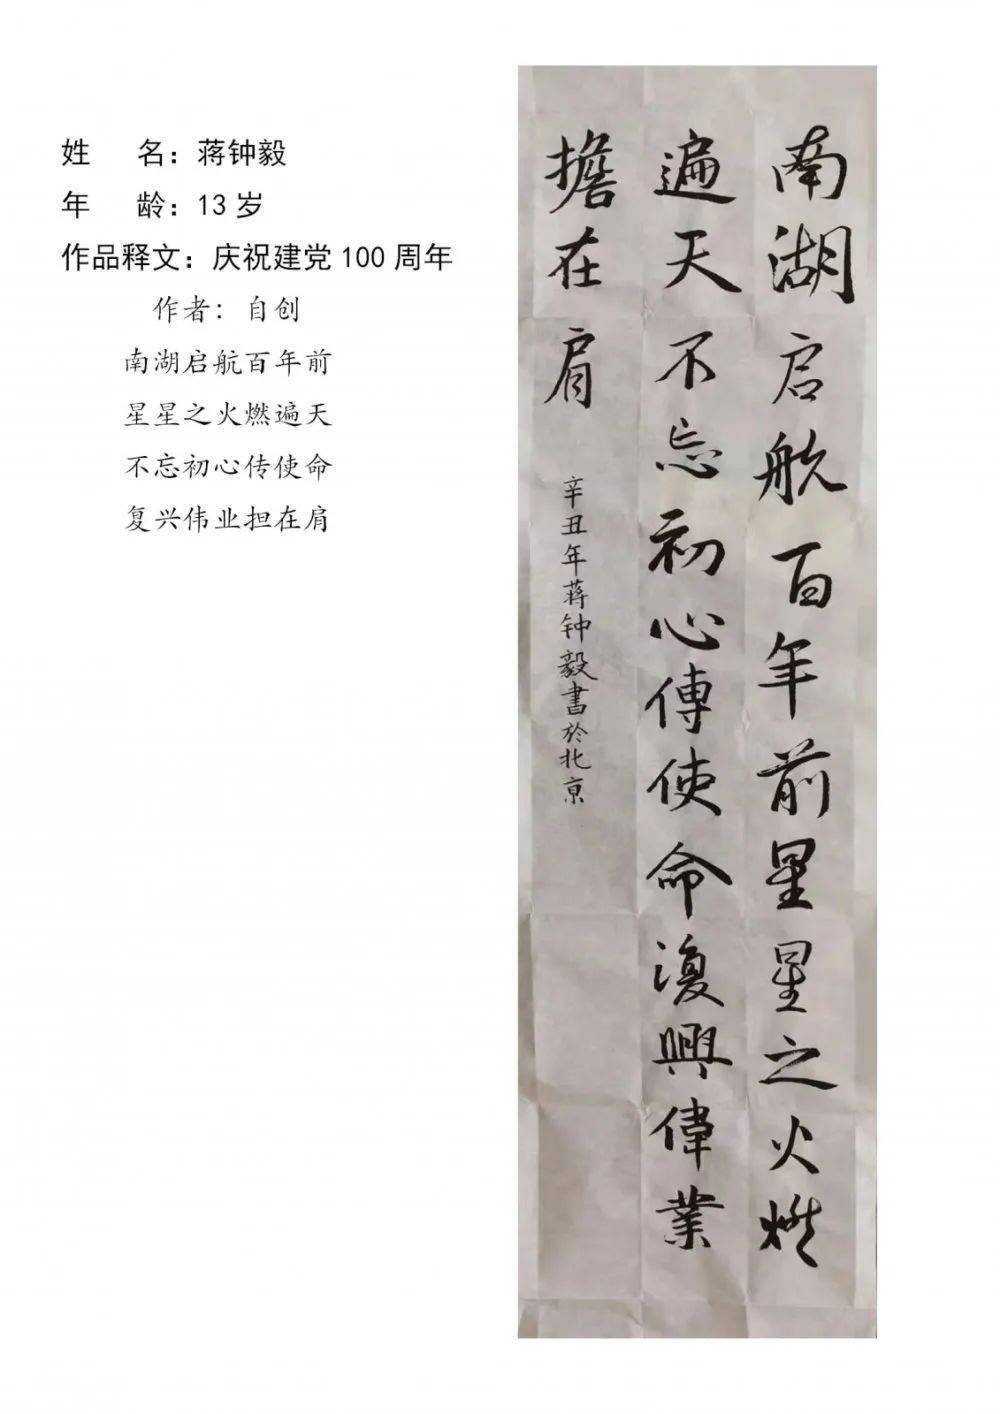 姓 名：蒋钟毅
年 龄：13 岁
作品释文：庆祝建党 100 周年
作者：自创
南湖启航百年前
星星之火燃遍天
不忘初心传使命
复兴伟业担在肩
南湖启航百年前星星之火燃
遍天不忘初心傳使命復興偉業
擔在肩
辛丑年蒋钟毅書於北京